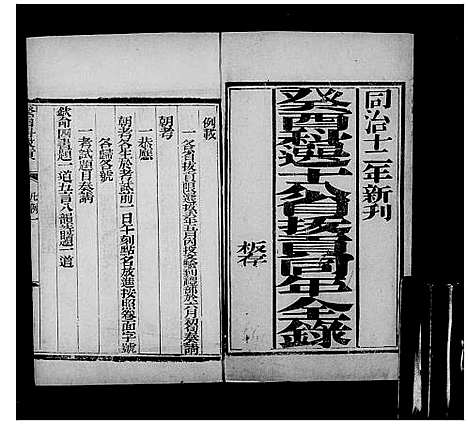 同治十二年新刊
癸酉科選十八省拔貢同年全錄
板存
例載
一各省拔貢限選拔次年五月內投文驗到禮部於六月初旬奏請
朝考
一恭應
朝考各生於考試前一日午刻點名放進按照卷面字號
各歸各號
一考試題目奏請
欽命四書題一道五言八韻詩題一道